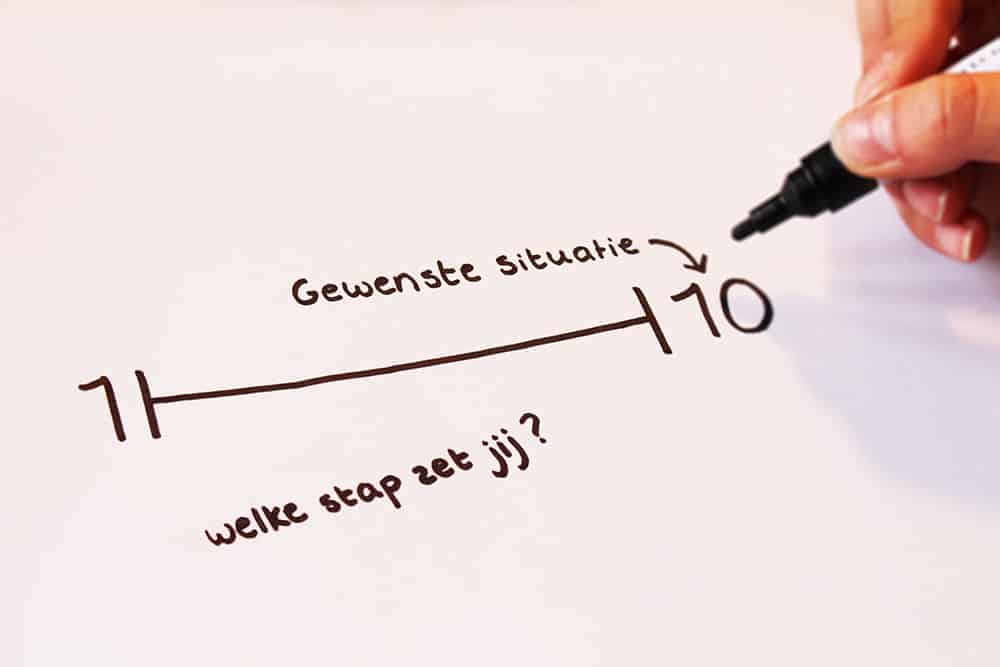 Gewenste situatie
1 10
welke stap zet jij?